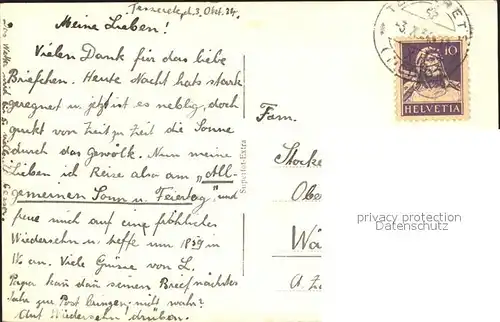 Tesserete, d. 3. Okt. 34.
Meine Lieben!
Vielen Dank für das liebe
Briefchen. Heute Nacht hats stark
geregnet u. jetzt ist es neblig, doch
guckt von Zeit zu Zeit die Sonne
durch das Gewölk. Nun meine
Lieben ich Reise also am "All-
gemeinen Sonn u. Feiertag", und
freue mich auf eine fröhliches
Wiedersehn u. treffe um 18 59 in
W. an. Viele Grüsse von L.
Papa kan dan seinen Brief nächstes
Jahr zur Post bringen, nicht wahr?
Auf Wiedersehn! drüben.
Superlor-Extra
Fam.
Stocke
Obe
Wä
a. Z
10
HELVETIA
privacy protection
watermark